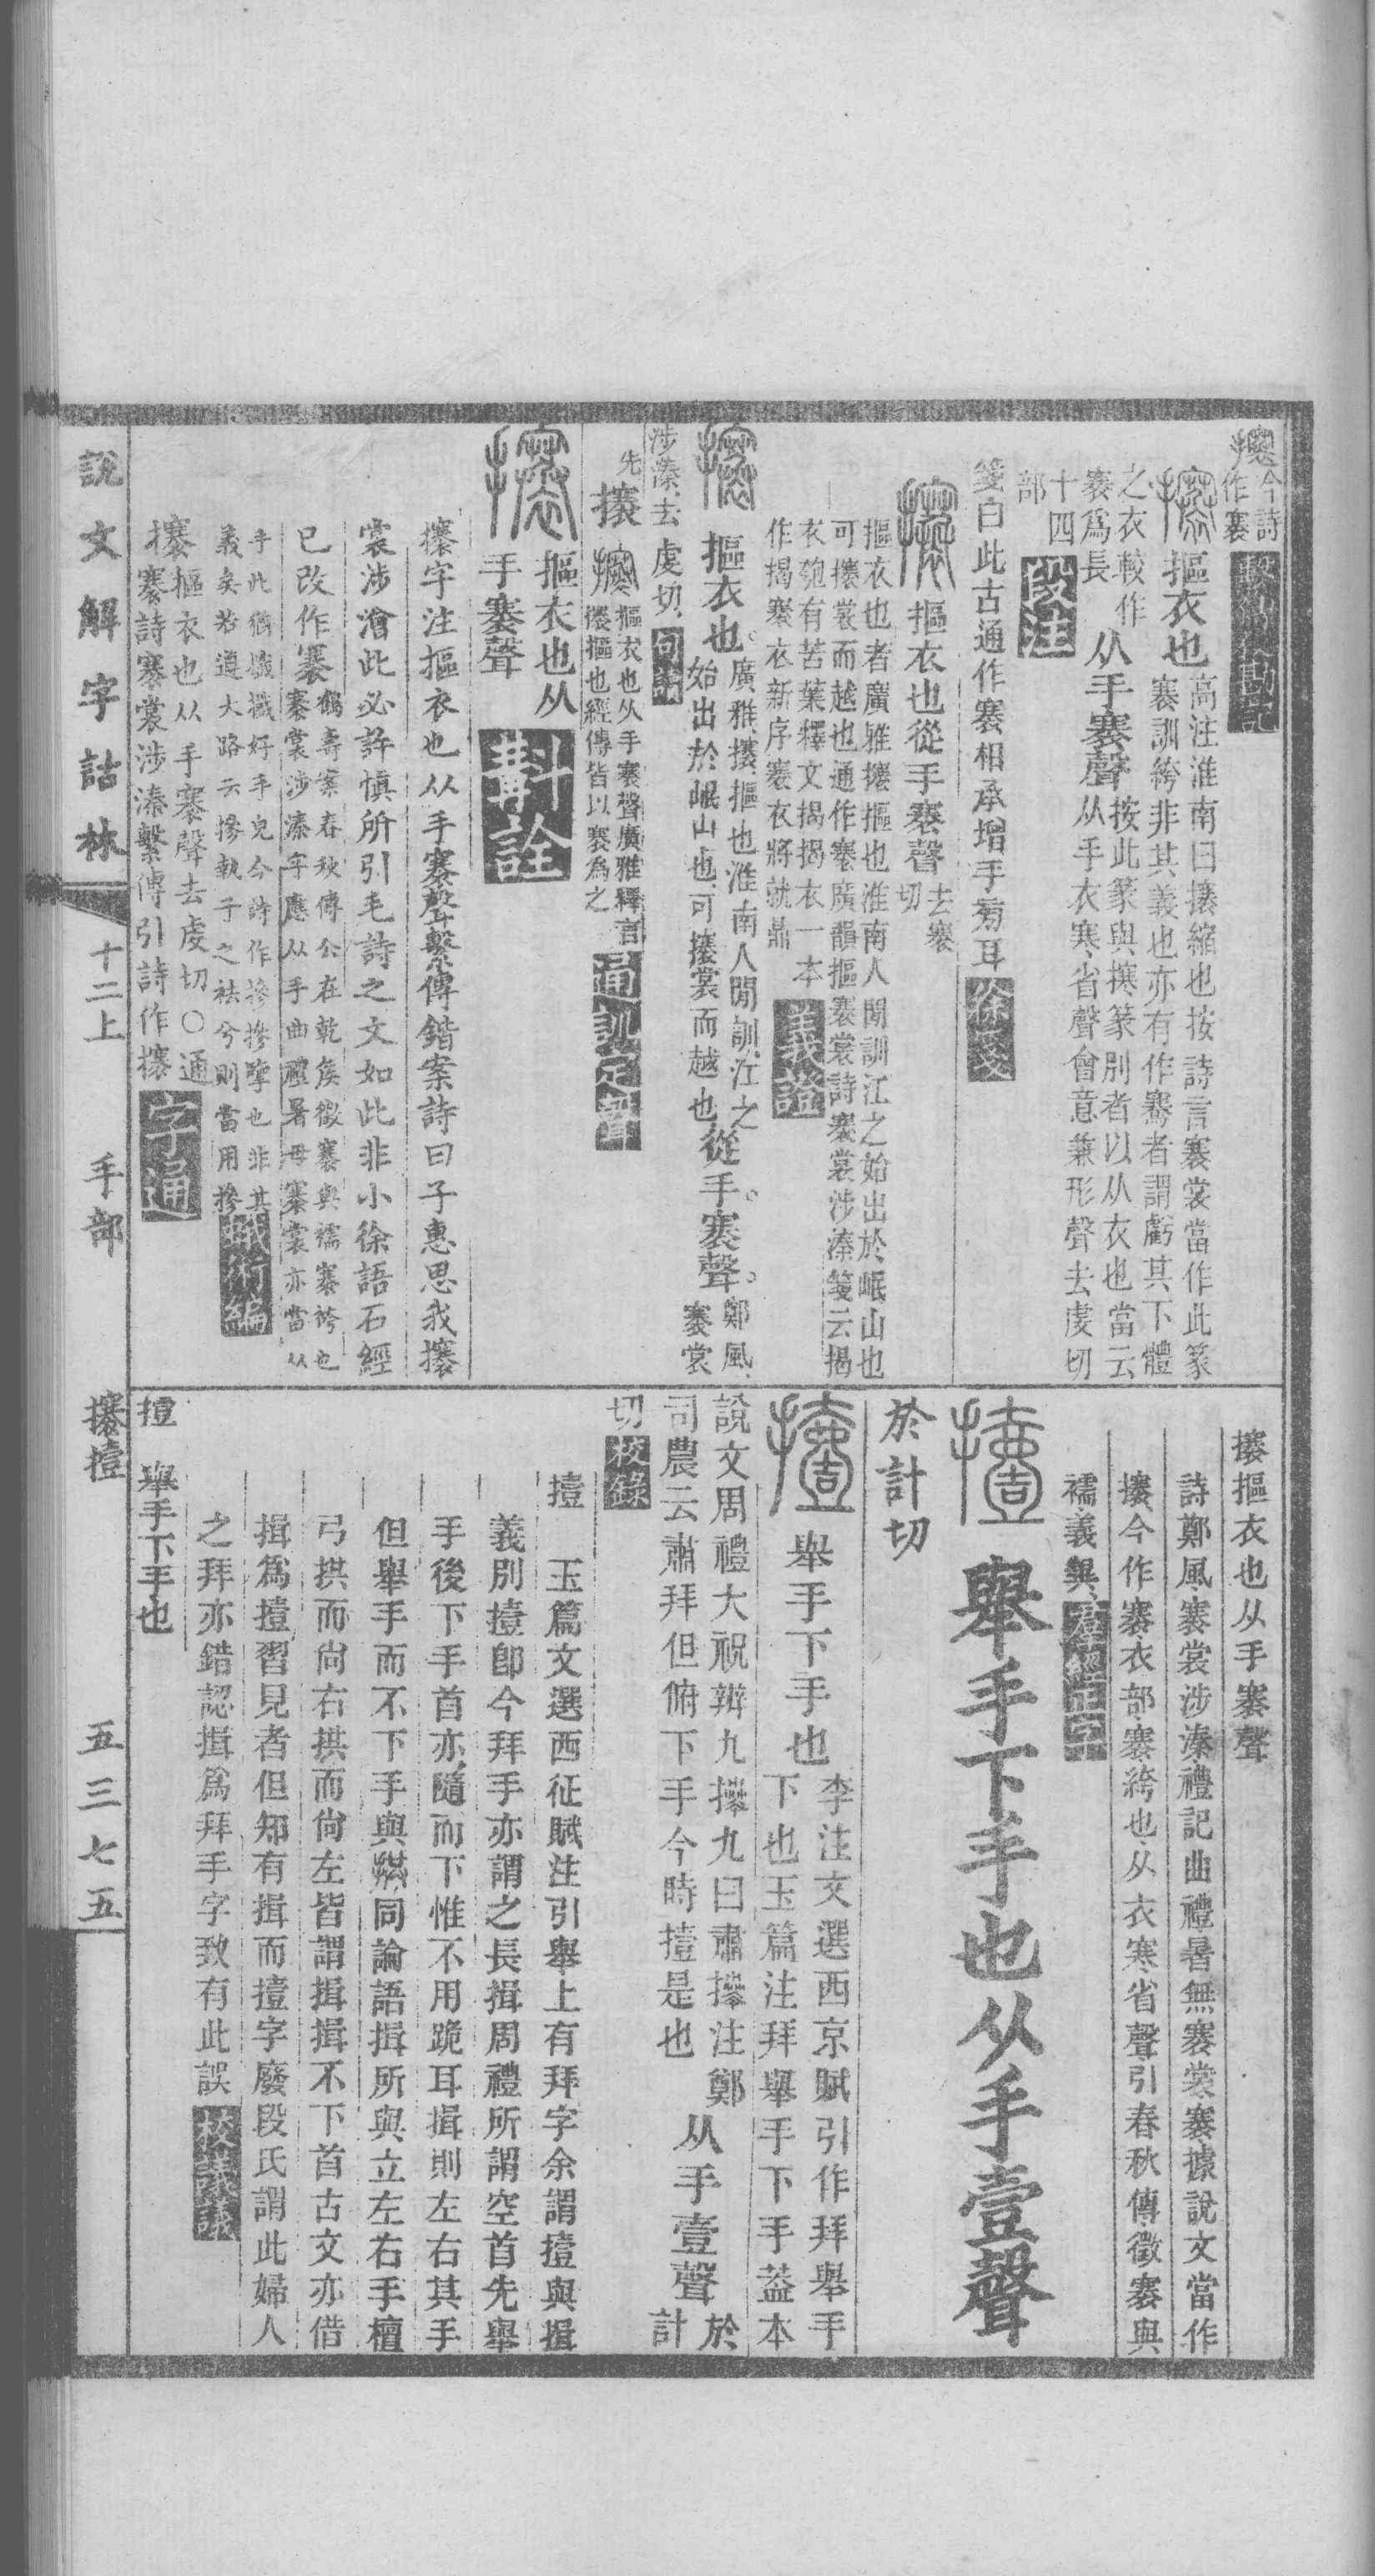 攓今詩作褰
攓摳衣也高注淮南曰攓縮也按詩言褰裳當作此篆
褰訓絝非其義也亦有作騫者謂虧其下體
之衣較作褰爲長从手褰聲按此篆與攐篆別者以从衣也當云
从手衣寒省聲會意兼形聲去虔切
十四部段注
箋曰此古通作褰相承增手菊耳徐箋
攓摳衣也從手褰聲去褰切
摳衣也者廣雅攓摳也淮南人閒訓江之始出於岷山也
可攓裳而越也通作褰廣韻摳褰裳詩褰裳涉溱箋云揭
衣匏有苦葉釋文揭揭衣一本
作揭褰衣新序褰衣將就鼎義證
攓摳衣也廣雅攓摳也淮南人閒訓江之
始出於岷山也可攓裳而越也從手褰聲鄭風褰裳
涉溱去虔切句讀
先攓攓摳衣也从手褰聲廣雅釋言
攓摳也經傳皆以褰爲之通訓定聲
攓摳衣也从
手褰聲斠詮
攓字注摳衣也从手褰聲繫傳鍇案詩曰子惠思我攓
裳涉澮此必許愼所引毛詩之文如此非小徐語石經
已改作褰鶴壽案春秋傳公在乾矦徵褰與襦褰袴也
褰裳涉溱字應从手曲禮暑毋褰裳亦當从
手此猶攕攕好手皃今詩作摻摻擥也非其
義矣若遵大路云摻執子之袪兮則當用摻蛾術編
攓摳衣也从手褰聲去虔切○通
褰詩褰裳涉溱繫傳引詩作攓字通
攓摳衣也从手褰聲
詩鄭風褰裳涉溱禮記曲禮暑無褰裳褰據說文當作
攓今作褰衣部褰絝也从衣寒省聲引春秋傳徵褰與
襦義異羣經正字
撎舉手下手也从手壹聲
於計切
撎舉手下手也李注文選西京賦引作拜舉手
下也玉篇注拜舉手下手葢本
說文周禮大祝辨九𢷎九曰肅𢷎注鄭
司農云肅拜但俯下手今時撎是也从手壹聲於計
切校錄
撎玉篇文選西征賦注引舉上有拜字余謂撎與揖
義別撎卽今拜手亦謂之長揖周禮所謂空首先舉
手後下手首亦隨而下惟不用跪耳揖則左右其手
但舉手而不下手與撎同論語揖所與立左右手檀
弓拱而尙右拱而尙左皆謂揖揖不下首古文亦借
揖爲撎習見者但知有揖而撎字廢段氏謂此婦人
之拜亦錯認揖爲拜手字致有此誤校議議
撎舉手下手也
說文解字詁林 十二上 手部 攓撎 五三七五